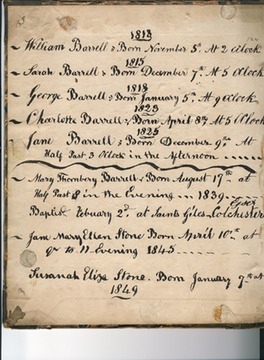 1813
William Barrell Born November 5th At 2 oClock
1815
Sarah Barrell Born December 7th At 5 oClock
1818
George Barrell Born January 5th At 9 oClock
1823
Charlotte Barrell Born April 8th At 5 oClock
1825
Jane Barrell Born December 9th At
Half Past 3 oClock in the Afternoon
Mary Thornbery Barrell Born August 17th at
Half Past 8 in the Evening in 1839
Essex
Baptised Febuary 2d at Saints Giles Colchester
Jane Mary Ellen Stone Born April 10th at
to 11 Evening 1845
Susanah Eliza Stone. Born January 9th at
1849